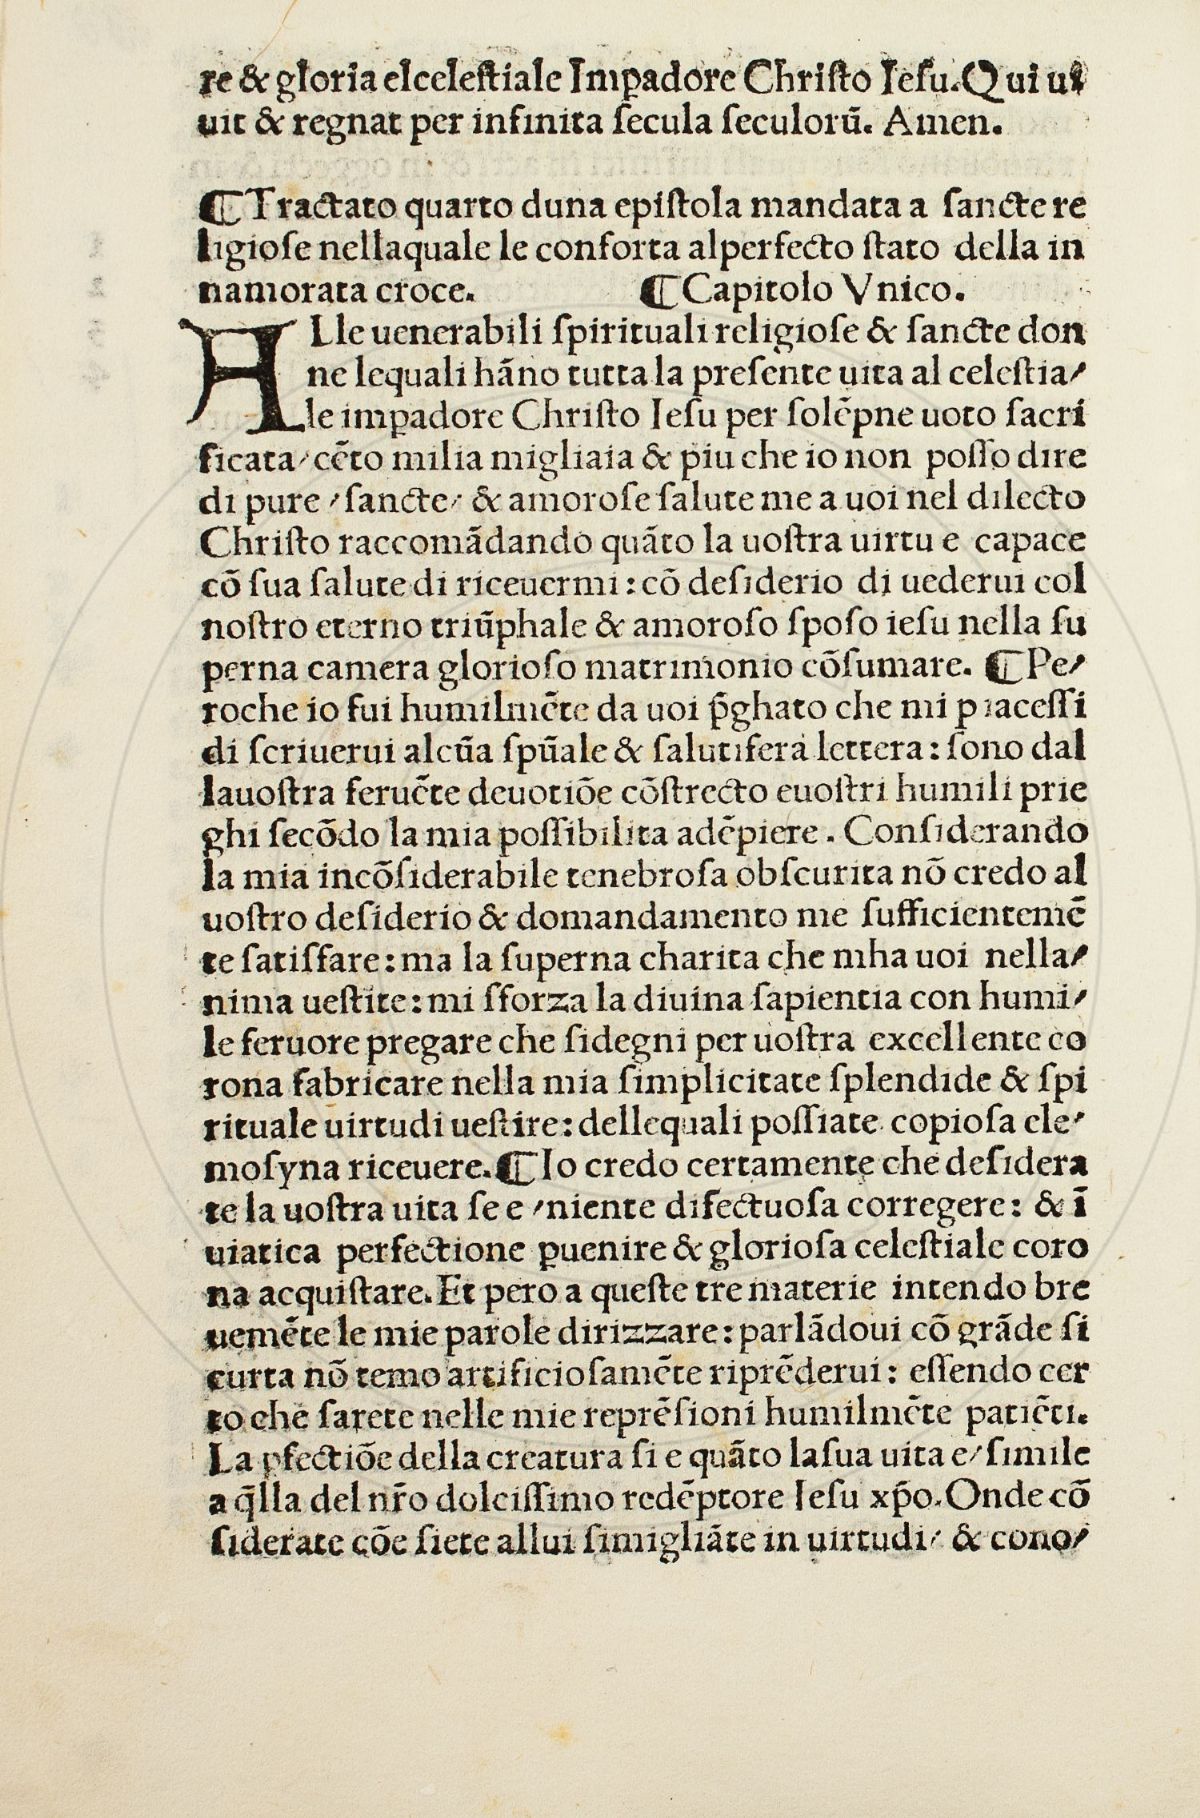 re & gloria elceleſtiale Imꝑadore Chriſto Ieſu. Qui ui
uit & regnat per infinita ſecula ſeculorū. Amen.
¶Tractato quarto duna epiſtola mandata a ſancte re
ligioſe nellaquale le conforta alperfecto ſtato della in
namorata croce. ¶Capitolo Vnico.
ALle uenerabili ſpirituali religioſe & ſancte don
ne lequali hāno tutta la preſente uita al celeſtia/
le imꝑadore Chriſto Ieſu per ſolēpne uoto ſacri
ficata/cēto milia migliaia & piu che io non poſſo dire
di pure/ſancte/ & amoroſe ſalute me a uoi nel dilecto
Chriſto raccomādando quāto la uoſtra uirtu e capace
cō ſua ſalute di riceuermi: cō deſiderio di uederui col
noſtro eterno triūphale & amoroſo ſpoſo ieſu nella ſu
perna camera glorioſo matrimonio cōſumare. ¶Pe/
roche io fui humilmēte da uoi p̄ghato che mi piaceſſi
di ſcriuerui alcūa ſpūale & ſalutifera lettera: ſono dal
lauoſtra feruēte deuotiōe cōſtrecto euoſtri humili prie
ghi ſecōdo la mia poſſibilita adēpiere. Conſiderando
la mia incōſiderabile tenebroſa obſcurita nō credo al
uoſtro deſiderio & domandamento me ſufficientemē
te ſatiſfare: ma la ſuperna charita che mha uoi nella/
nima ueſtite: mi ſforza la diuina ſapientia con humi/
le feruore pregare che ſidegni per uoſtra excellente co
rona fabricare nella mia ſimplicitate ſplendide & ſpi
rituale uirtudi ueſtire: dellequali poſſiate copioſa ele/
moſyna riceuere. ¶Io credo certamente che deſidera
te la uoſtra uita ſe e/niente difectuoſa corregere: & ī
uiatica perfectione ꝑuenire & glorioſa celeſtiale coro
na acquiſtare. Et pero a queſte tre materie intendo bre
uemēte le mie parole dirizzare: parlādoui cō grāde ſi
curta nō temo artificioſamēte riprēderui: eſſendo cer
to che ſarete nelle mie reprēſioni humilmēte patiēti.
La ꝑfectiōe della creatura ſi e quāto laſua uita e/ſimile
a q̄lla del nr̄o dolciſſimo redēptore Ieſu xp̄o. Onde cō
ſiderate cōe ſiete allui ſimigliāte in uirtudi/ & cono/